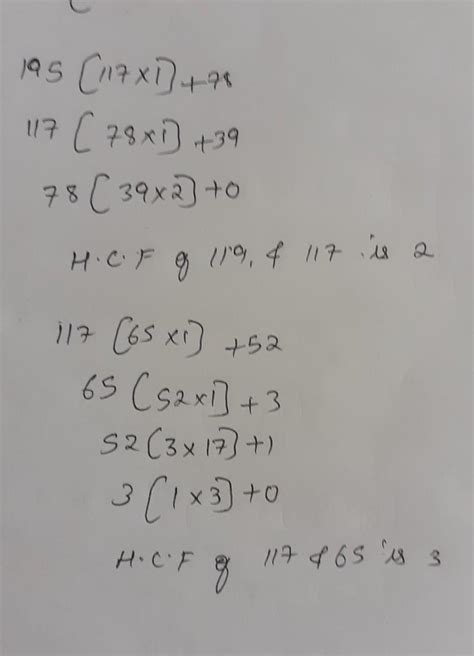 195 [117×1]+78
117 [78×1] +39
78 [39×2]+0
H.C.F of 119, & 117 is 2
117 [65×1] +52
65 [52×1]+3
52[3×17]+1
3[1×3]+0
H.C.F of 117 & 65 is 3